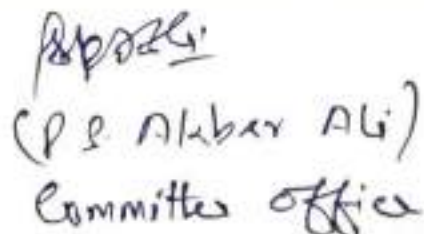 (P S Akber Ali)
Committee Office